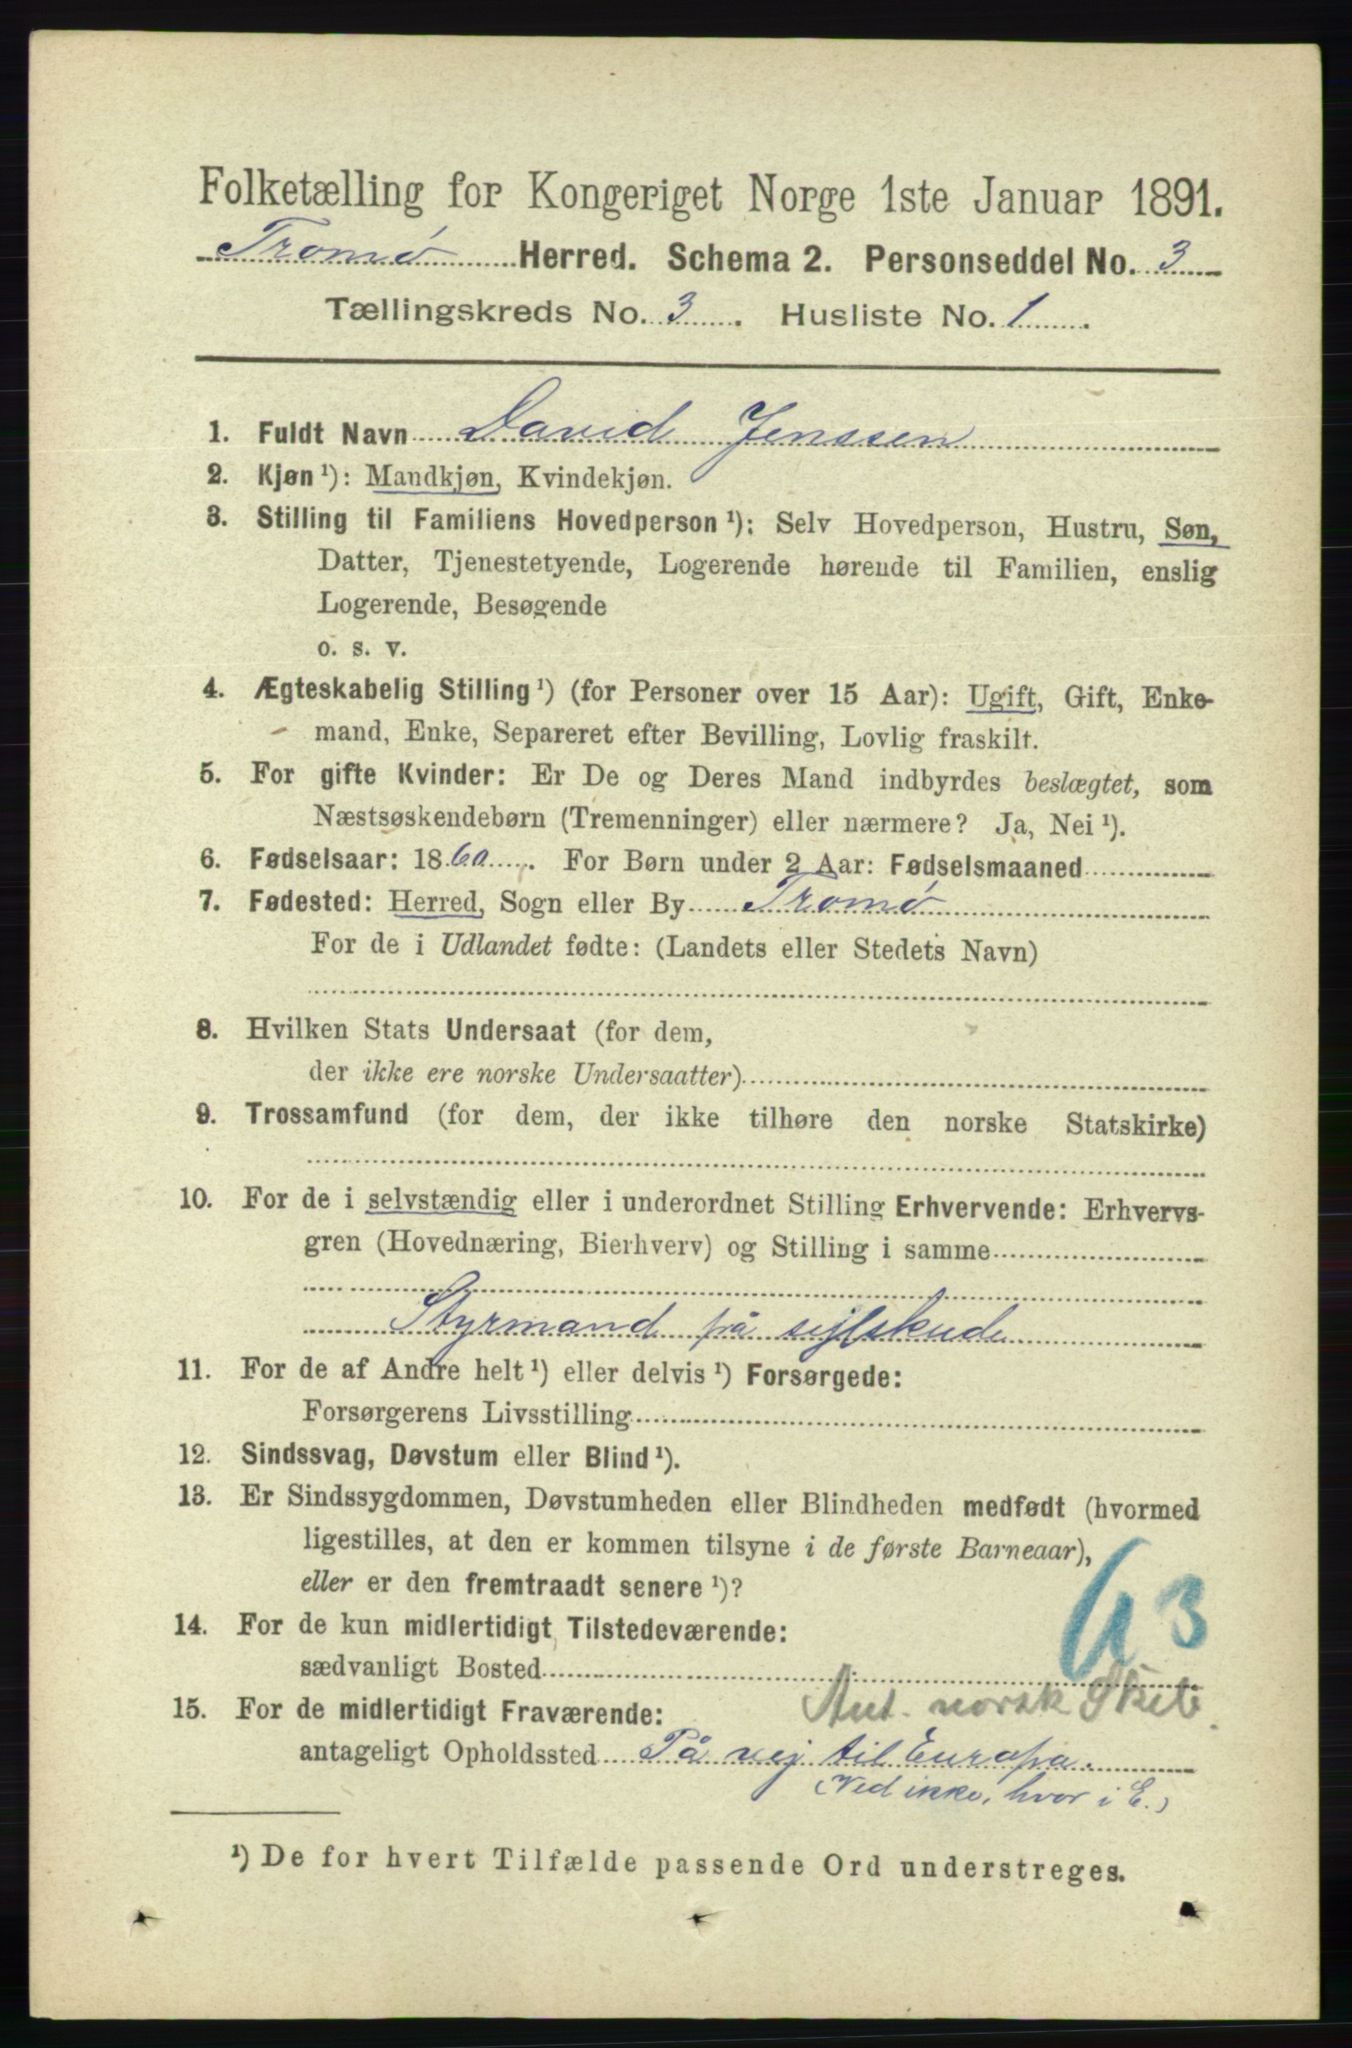 Folketælling for Kongeriget Norge 1ste Januar 1891.
Tromø Herred. Schema 2. Personseddel No. 3
Tællingskreds No. 3. Husliste No. 1.
1. Fuldt Navn David Jenssen
2. Kjøn ¹): Mandkjøn, Kvindekjøn.
3. Stilling til Familiens Hovedperson ¹): Selv Hovedperson, Hustru, Søn,
Datter, Tjenestetyende, Logerende hørende til Familien, enslig
Logerende, Besøgende
o. s. v.
4. Ægteskabelig Stilling ¹) (for Personer over 15 Aar): Ugift, Gift, Enke-
mand, Enke, Separeret efter Bevilling, Lovlig fraskilt.
5. For gifte Kvinder: Er De og Deres Mand indbyrdes beslægtet, som
Næstsøskendebørn (Tremenninger) eller nærmere? Ja, Nei ¹).
6. Fødselsaar: 1860. For Børn under 2 Aar: Fødselsmaaned
7. Fødested: Herred, Sogn eller By Tromø
For de i Udlandet fødte: (Landets eller Stedets Navn)
8. Hvilken Stats Undersaat (for dem,
der ikke ere norske Undersaatter)
9. Trossamfund (for dem, der ikke tilhøre den norske Statskirke)
10. For de i selvstændig eller i underordnet Stilling Erhvervende: Erhvervs-
gren (Hovednæring, Bierhverv) og Stilling i samme
Styrmand på sejlskude
11. For de af Andre helt ¹) eller delvis ¹) Forsørgede:
Forsørgerens Livsstilling
12. Sindssvag, Døvstum eller Blind ¹).
13. Er Sindssygdommen, Døvstumheden eller Blindheden medfødt (hvormed
ligestilles, at den er kommen tilsyne i de første Barneaar),
eller er den fremtraadt senere ¹)?
14. For de kun midlertidigt Tilstedeværende:
sædvanligt Bosted
15. For de midlertidigt Fraværende:
Ant. norsk Skib.
antageligt Opholdssted På vej til Europa.
(Ved ikke, hvor i E.)
¹) De for hvert Tilfælde passende Ord understreges.